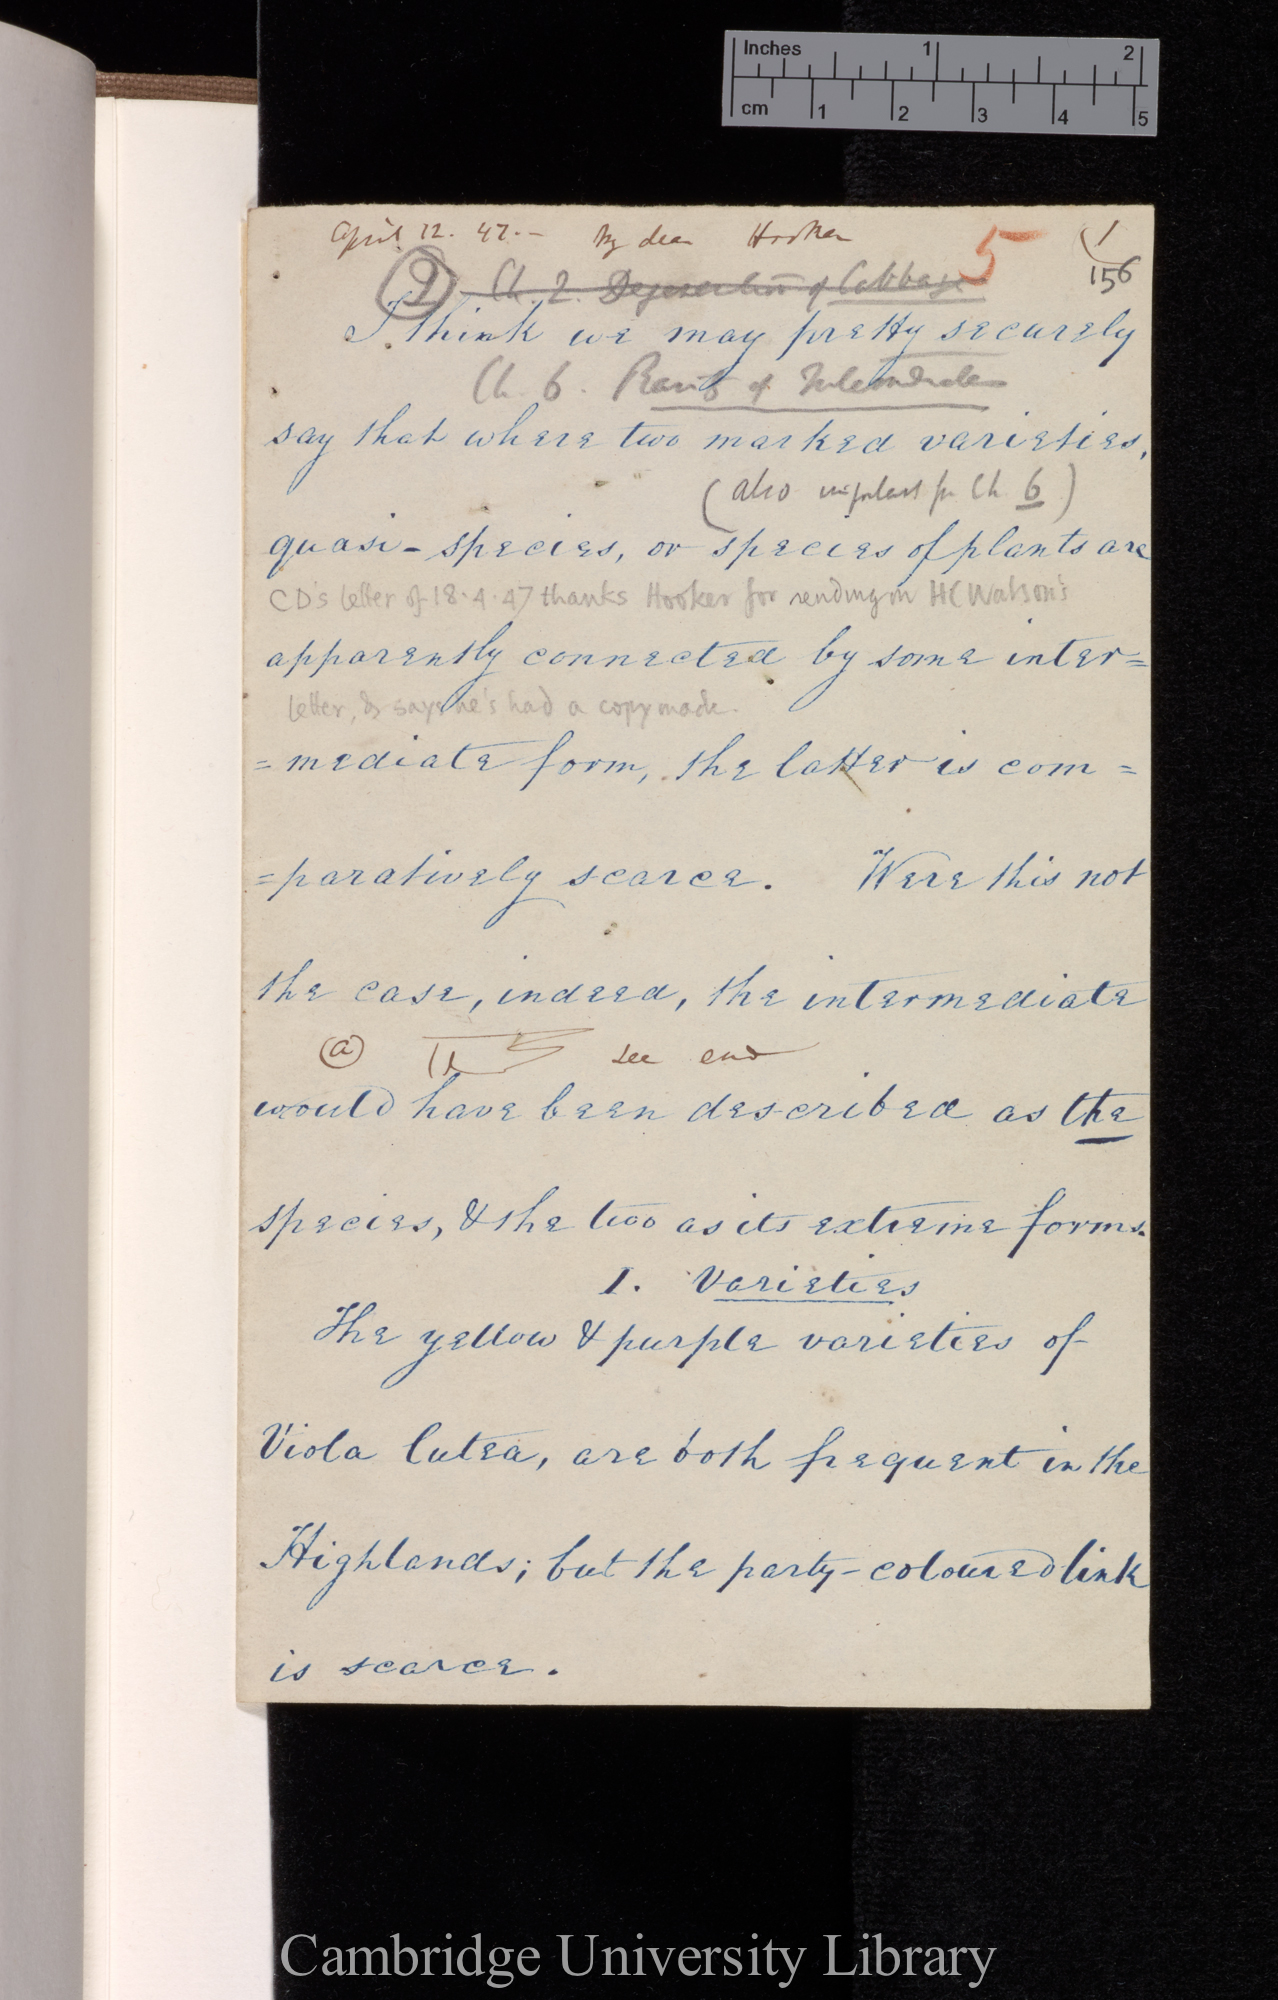 Inches 1 2
cm 1 2 3 4 5
April 12. 47.- My dear Hooker 5 (1
156
Ch. 2. Degeneration of Cabbage
I think we may pretty securely
Ch. 6. Rarity of Intermediates
say that where two marked varieties,
(also important for Ch 6)
quasi-species, or species of plants are
CD's letter of 18.4.47 thanks Hooker for sending on HC Watson's
apparently connected by some inter=
letter, & says he's had a copy made.
=mediate form, the latter is com=
=paratively scarce. Were this not
the case, indeed, the intermediate
(a) see end
would have been described as the
species, & the two as its extreme forms.
1. Varieties
The yellow & purple varieties of
Viola lutea, are both frequent in the
Highlands; but the party-coloured link
is scarce.
Cambridge University Library